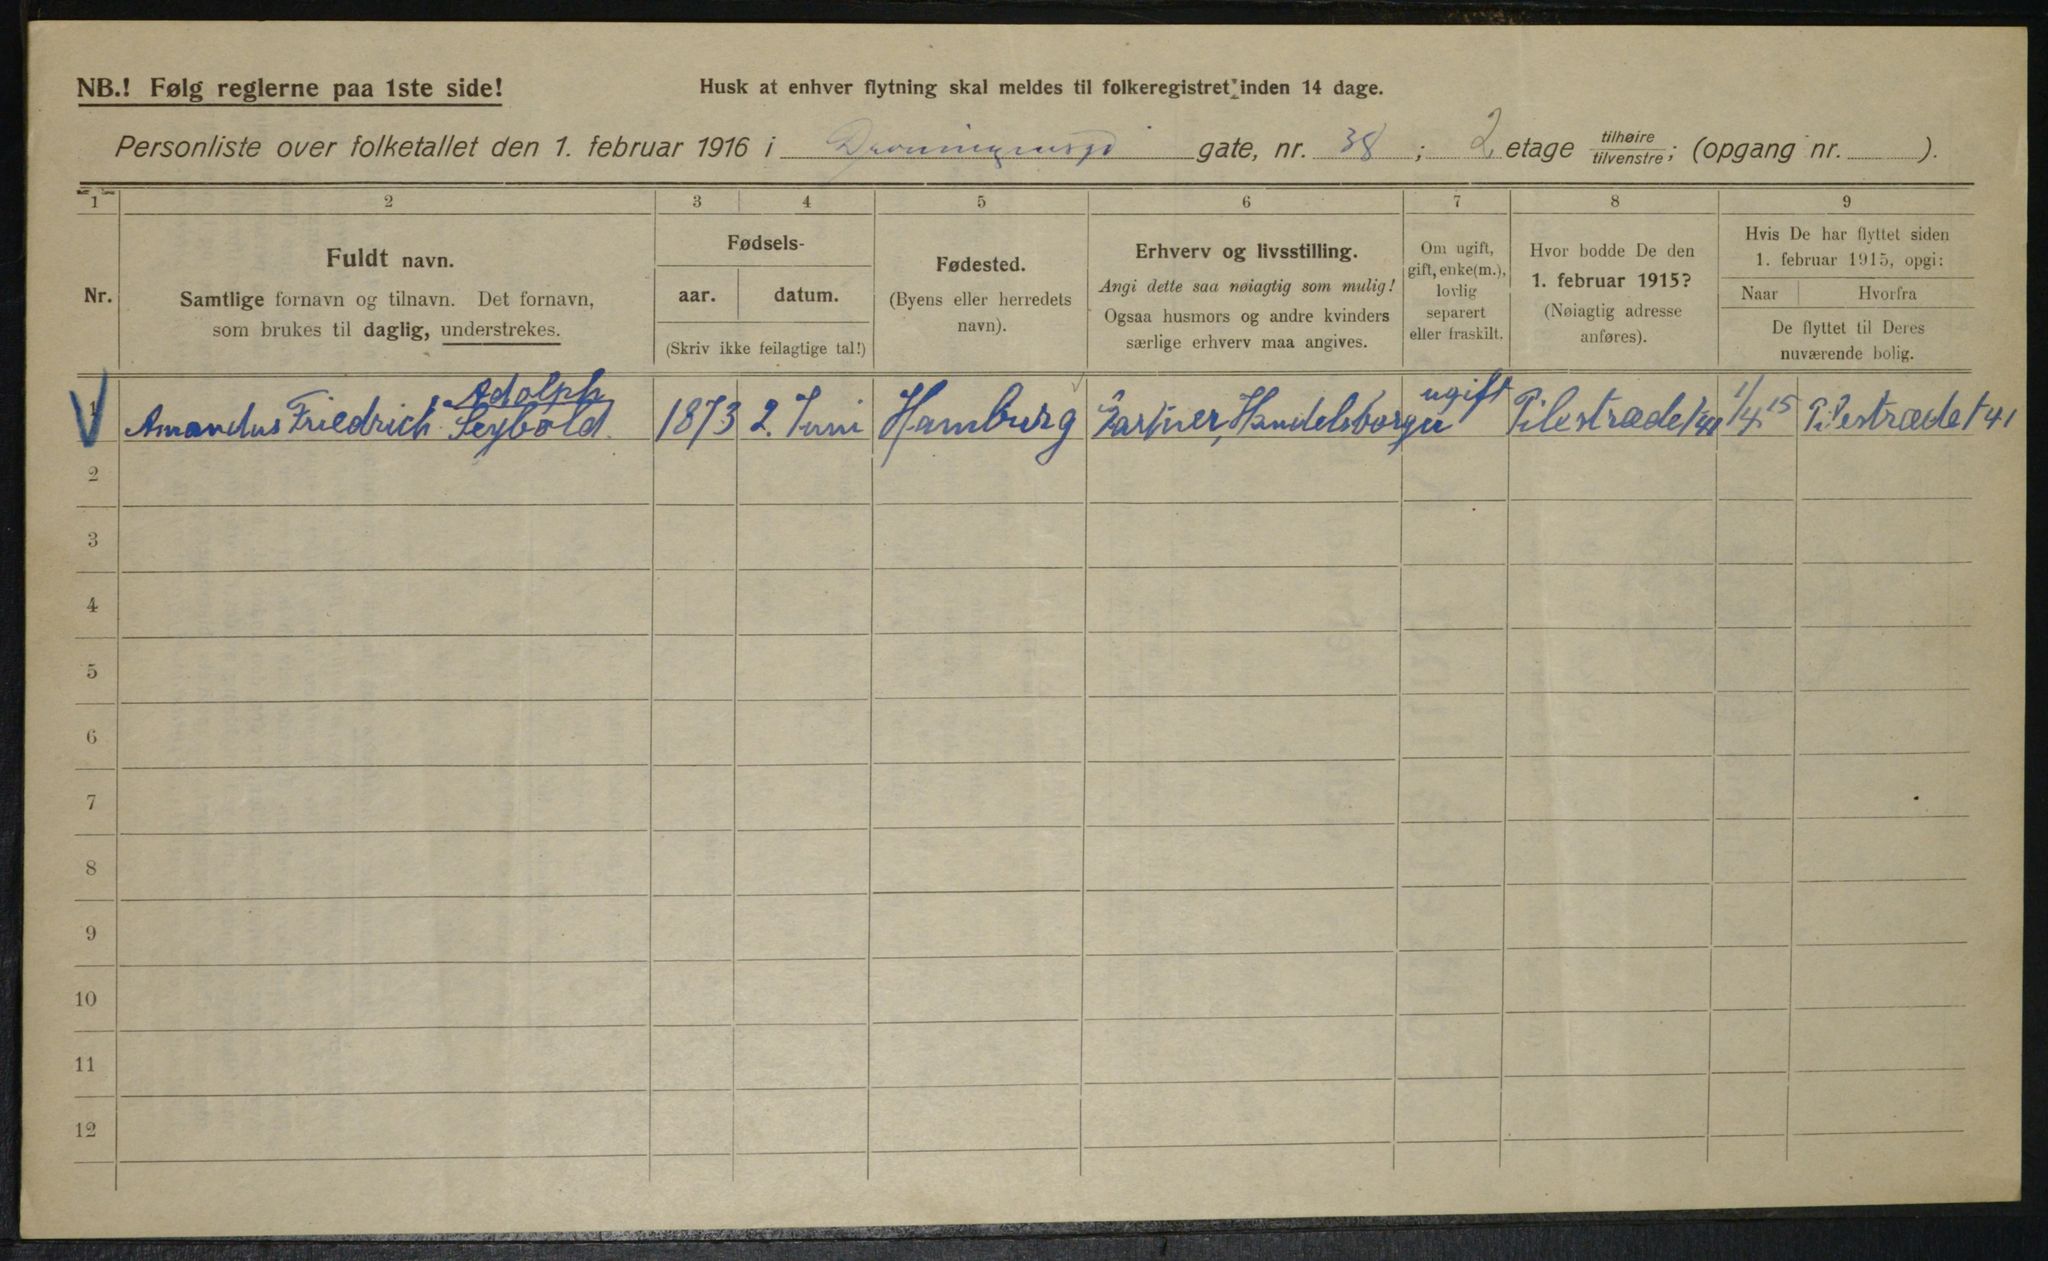 NB.! Følg reglerne paa 1ste side!
Husk at enhver flytning skal meldes til folkeregistret inden 14 dage.
Personliste over folketallet den 1. februar 1916 i Dronningensgd gate, nr. 38; 2 etage tilhøire/tilvenstre; (opgang nr. ).
1 2 3 4 5 6 7 8 9
Nr.
Fuldt navn.
Samtlige fornavn og tilnavn. Det fornavn,
som brukes til daglig, understrekes.
Fødsels-
aar. datum.
(Skriv ikke feilagtige tal!)
Fødested.
(Byens eller herredets
navn).
Erhverv og livsstilling.
Angi dette saa nøiagtig som mulig!
Ogsaa husmors og andre kvinders
særlige erhverv maa angives.
Om ugift,
gift, enke(m.),
lovlig
separert
eller fraskilt.
Hvor bodde De den
1. februar 1915?
(Nøiagtig adresse
anføres).
Hvis De har flyttet siden
1. februar 1915, opgi:
Naar Hvorfra
De flyttet til Deres
nuværende bolig.
Adolph
1 Amandus Friedrich Seybold. 1873 2. Juni Hamburg Gartner, Handelsborger ugift Pilestrædet 41 1/4 15 Pilestrædet 41
2
3
4
5
6
7
8
9
10
11
12